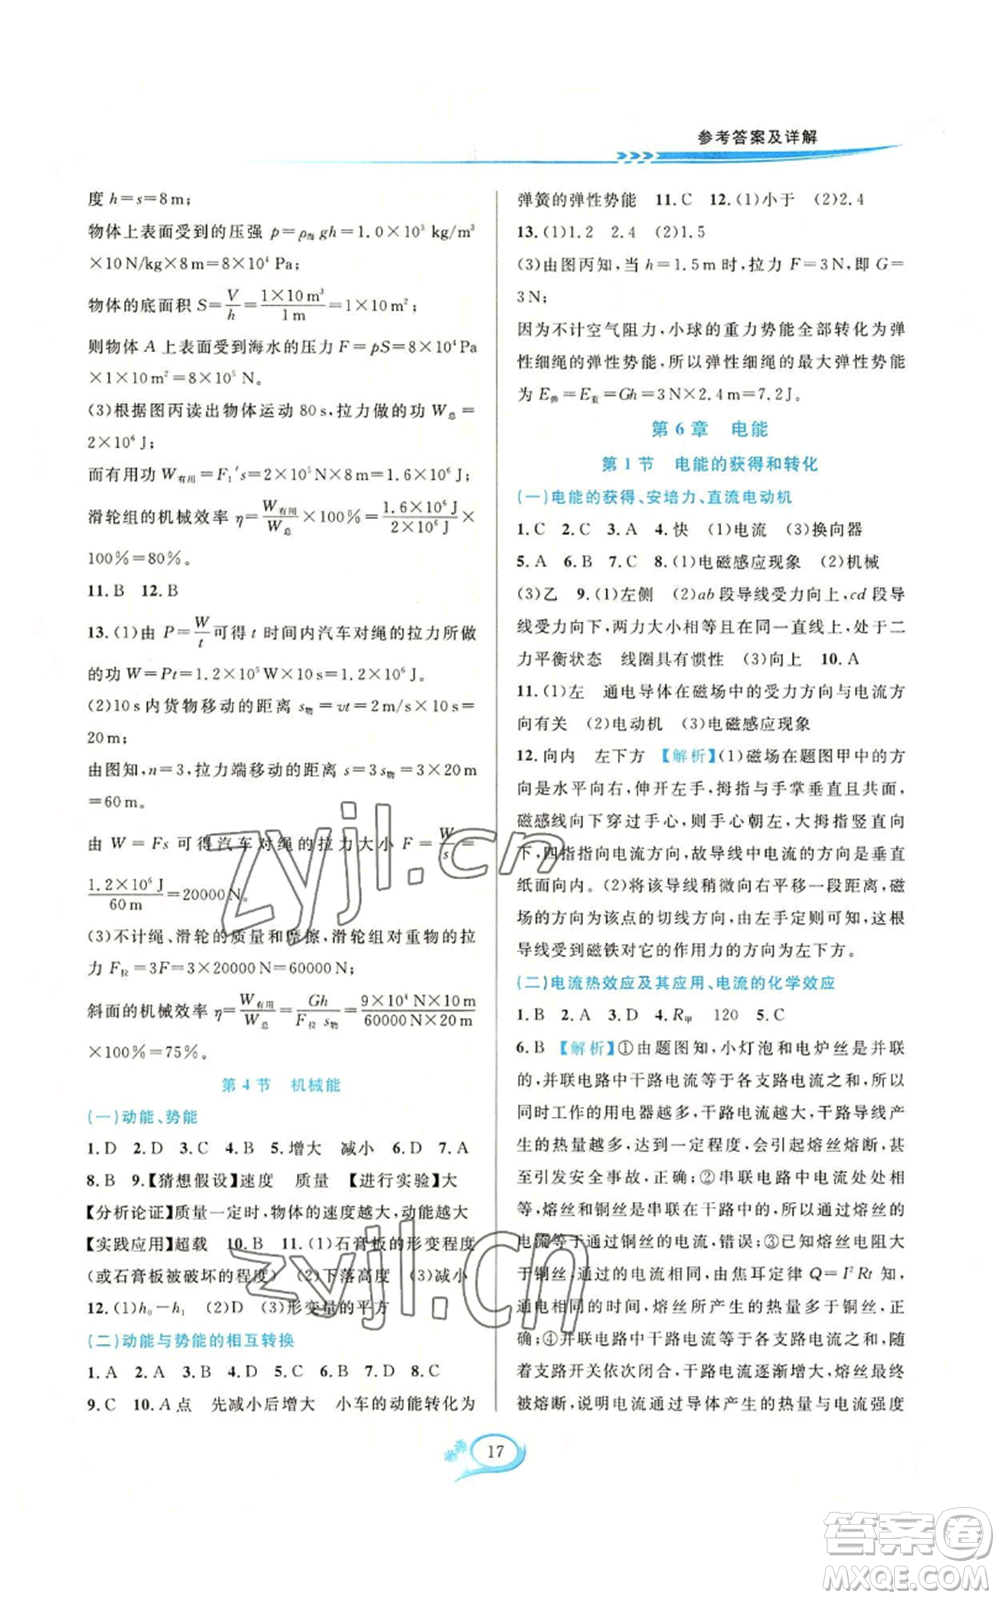 参考答案及详解
度 h＝s＝8 m；
物体上表面受到的压强 p＝ρ海gh＝1.0×10³ kg/m³
×10 N/kg×8 m＝8×10⁴ Pa；
物体的底面积 S＝V/h＝1×10 m³/1 m＝1×10 m²；
则物体 A 上表面受到海水的压力 F＝pS＝8×10⁴ Pa
×1×10 m²＝8×10⁵ N。
(3)根据图丙读出物体运动 80 s，拉力做的功 W总＝
2×10⁶ J；
而有用功 W有用＝F₁′s＝2×10⁵ N×8 m＝1.6×10⁶ J，
滑轮组的机械效率 η＝W有用/W总×100%＝1.6×10⁶ J/2×10⁶ J×
100%＝80%。
11. B 12. B
13. (1)由 P＝W/t 可得 t 时间内汽车对绳的拉力所做
的功 W＝Pt＝1.2×10⁵ W×10 s＝1.2×10⁶ J。
(2)10 s 内货物移动的距离 s物＝vt＝2 m/s×10 s＝
20 m；
由图知，n＝3，拉力端移动的距离 s＝3s物＝3×20 m
＝60 m。
由 W＝Fs 可得汽车对绳的拉力大小 F＝W/s＝
1.2×10⁶ J/60 m＝20000 N。
(3)不计绳、滑轮的质量和摩擦，滑轮组对重物的拉
力 F拉＝3F＝3×20000 N＝60000 N；
斜面的机械效率 η＝W有用/W总＝Gh/F拉 s物＝9×10⁴ N×10 m/60000 N×20 m
×100%＝75%。
第 4 节 机械能
(一)动能、势能
1. D 2. D 3. C 4. B 5. 增大 减小 6. D 7. A
8. B 9.【猜想假设】速度 质量 【进行实验】大
【分析论证】质量一定时，物体的速度越大，动能越大
【实践应用】超载 10. B 11. (1)石膏板的形变程度
(或石膏板被破坏的程度) (2)下落高度 (3)减小
12. (1)h₀－h₁ (2)D (3)形变量的平方
(二)动能与势能的相互转换
1. A 2. A 3. A 4. B 5. D 6. B 7. D 8. C
9. C 10. A点 先减小后增大 小车的动能转化为
弹簧的弹性势能 11. C 12. (1)小于 (2)2.4
13. (1)1.2 2.4 (2)1.5
(3)由图丙知，当 h＝1.5 m 时，拉力 F＝3 N，即 G＝
3 N；
因为不计空气阻力，小球的重力势能全部转化为弹
性细绳的弹性势能，所以弹性细绳的最大弹性势能
为 E弹＝E重＝Gh＝3 N×2.4 m＝7.2 J。
第 6 章 电能
第 1 节 电能的获得和转化
(一)电能的获得、安培力、直流电动机
1. C 2. C 3. A 4. 快 (1)电流 (3)换向器
5. A 6. B 7. C 8. (1)电磁感应现象 (2)机械
(3)乙 9. (1)左侧 (2)ab 段导线受力向上，cd 段
导线受力向下，两力大小相等且在同一直线上，处于二
力平衡状态 线圈具有惯性 (3)向上 10. A
11. (1)左 通电导体在磁场中的受力方向与电流方
向有关 (2)电动机 (3)电磁感应现象
12. 向内 左下方 【解析】(1)磁场在题图甲中的方
向是水平向右，伸开左手，拇指与手掌垂直且共面，
磁感线向下穿过手心，则手心朝左，大拇指竖直向
下，四指指向电流方向，故导线中的电流方向是垂直
纸面向内。(2)将该导线稍微向右平移一小段，磁
场的方向为该点的切线方向，由左手定则可知，这根
导线受到磁铁对它的作用力的方向为左下方。
(二)电流热效应及其应用、电流的化学效应
1. B 2. A 3. D 4. R甲 120 5. C
6. B 【解析】①由题图知，小灯泡和电炉丝是并联
的，并联电路中干路电流等于各支路电流之和，所以
同时工作的用电器越多，干路电流越大，干路导线产
生的热量越多，达到一定程度，会引起熔丝熔断，甚
至引发安全事故，正确；②串联电路中电流处处相
等，熔丝和铜丝是串联在电路中的，所以通过熔丝的
电流等于通过铜丝的电流，错误；③已知熔丝电阻大
于铜丝，通过的电流相同，由焦耳定律 Q＝I²Rt 知，
通电相同的时间，熔丝所产生的热量多于铜丝，正
确；④并联电路中干路电流等于各支路电流之和，随
着支路开关依次闭合，干路电流逐渐增大，熔丝最终
被熔断，说明电流通过导体产生的热量与电流强度
17
zyjl.cn
zyjl.cn
答案圈
MXQE.COM